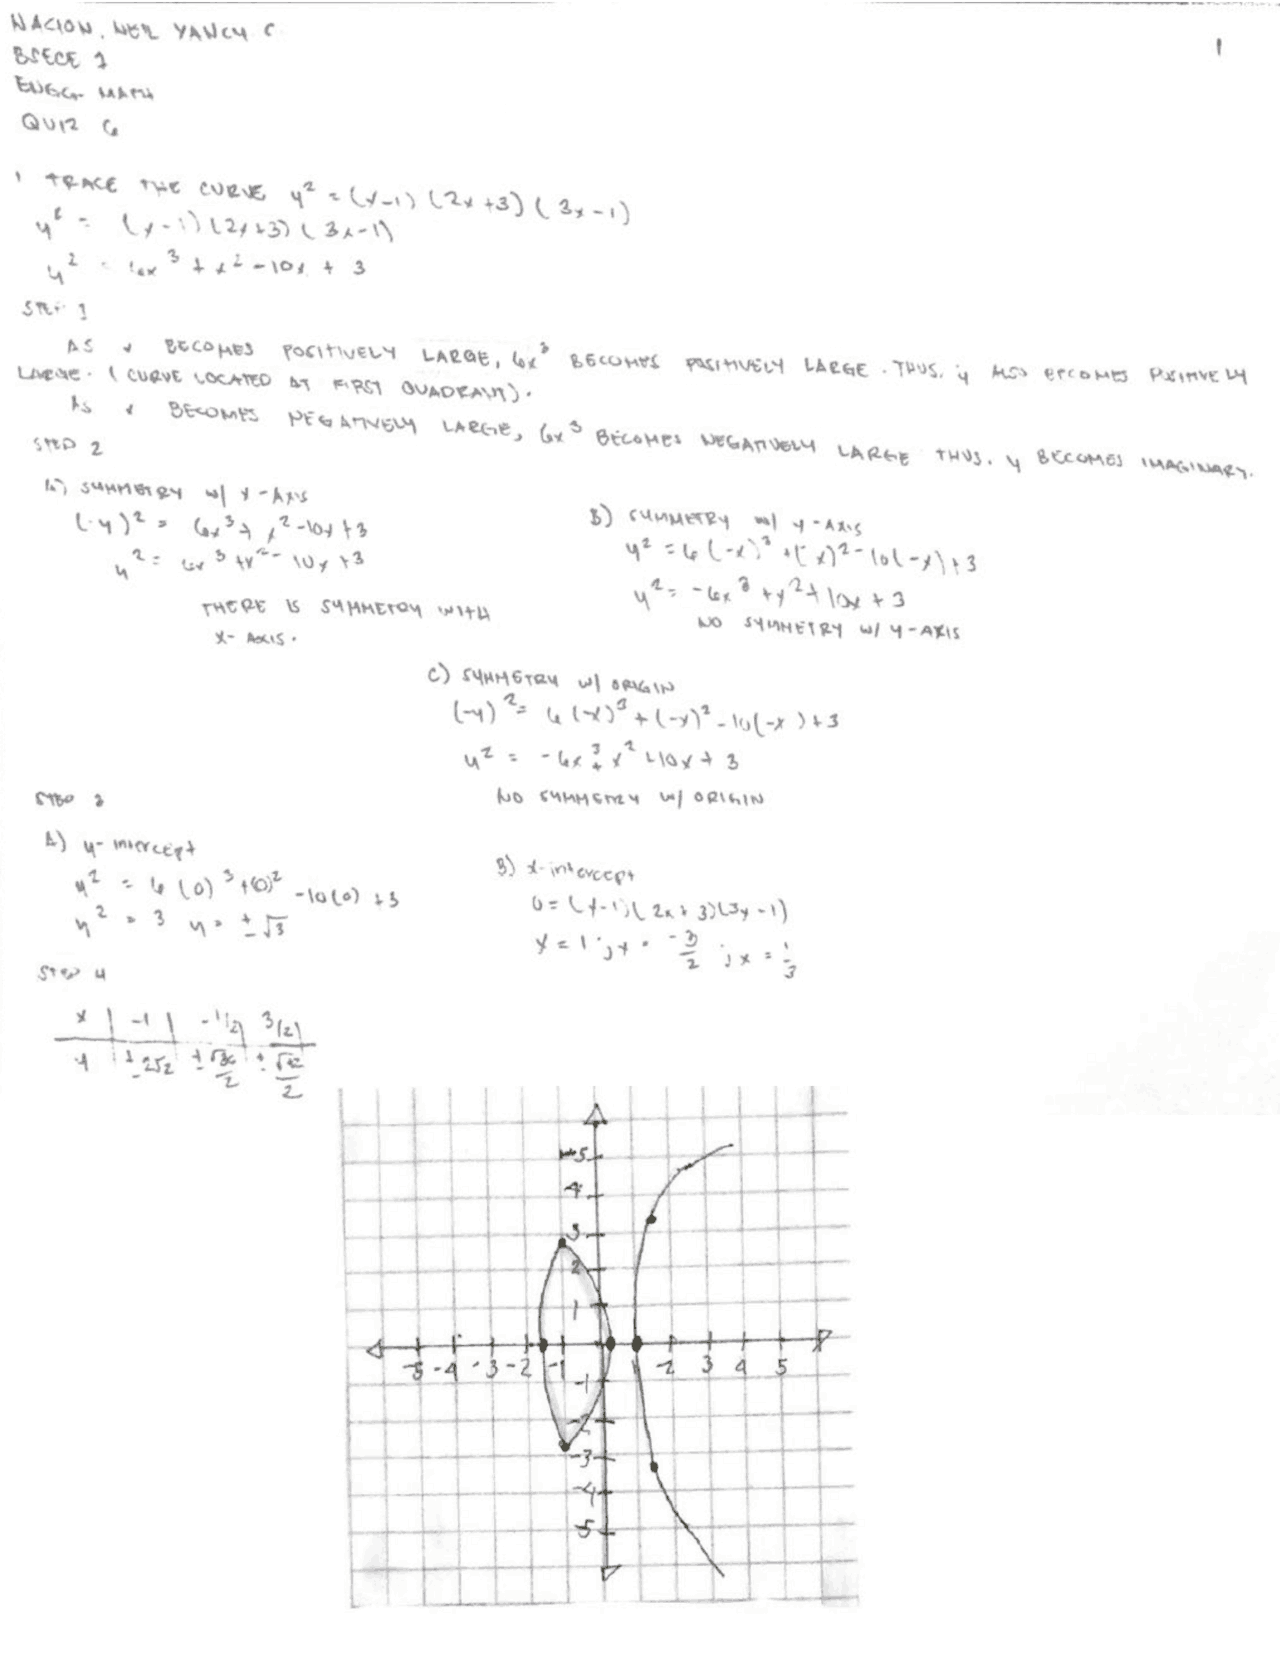 NACION, NEIL YANCY C
1
BSECE 2
ENGG MATH
QUIZ 6
1 TRACE THE CURVE y² = (x-1) (2x+3) (3x-1)
y² = (x-1)(2x+3)(3x-1)
y² = 6x³ + x² - 10x + 3
STEP 1
AS x BECOMES POSITIVELY LARGE, 6x³ BECOMES POSITIVELY LARGE. THUS, y ALSO BECOMES POSITIVELY
LARGE. (CURVE LOCATED AT FIRST QUADRANT).
AS x BECOMES NEGATIVELY LARGE, 6x³ BECOMES NEGATIVELY LARGE THUS, y BECOMES IMAGINARY.
STEP 2
A) SYMMETRY W/ X-AXIS
(-y)² = 6x³ + x² - 10x + 3
y² = 6x³ + x² - 10x + 3
THERE IS SYMMETRY WITH
X-AXIS.
B) SYMMETRY W/ Y-AXIS
y² = 6(-x)³ + (-x)² - 10(-x) + 3
y² = -6x³ + x² + 10x + 3
NO SYMMETRY W/ Y-AXIS
C) SYMMETRY W/ ORIGIN
(-y)² = 6(-x)³ + (-x)² - 10(-x) + 3
y² = -6x³ + x² + 10x + 3
NO SYMMETRY W/ ORIGIN
STEP 3
A) y-intercept
y² = 6(0)³ + (0)² - 10(0) + 3
y² = 3 y = ±√3
B) x-intercept
0 = (x-1)(2x+3)(3x-1)
x = 1 ; x = -3/2 ; x = 1/3
STEP 4
x | -1 | -1/2 | 3/2
y | ±2√2 | ±√30/2 | ±√42/2
5
4
3
2
1
-5 -4 -3 -2 -1 1 2 3 4 5
-1
-2
-3
-4
-5